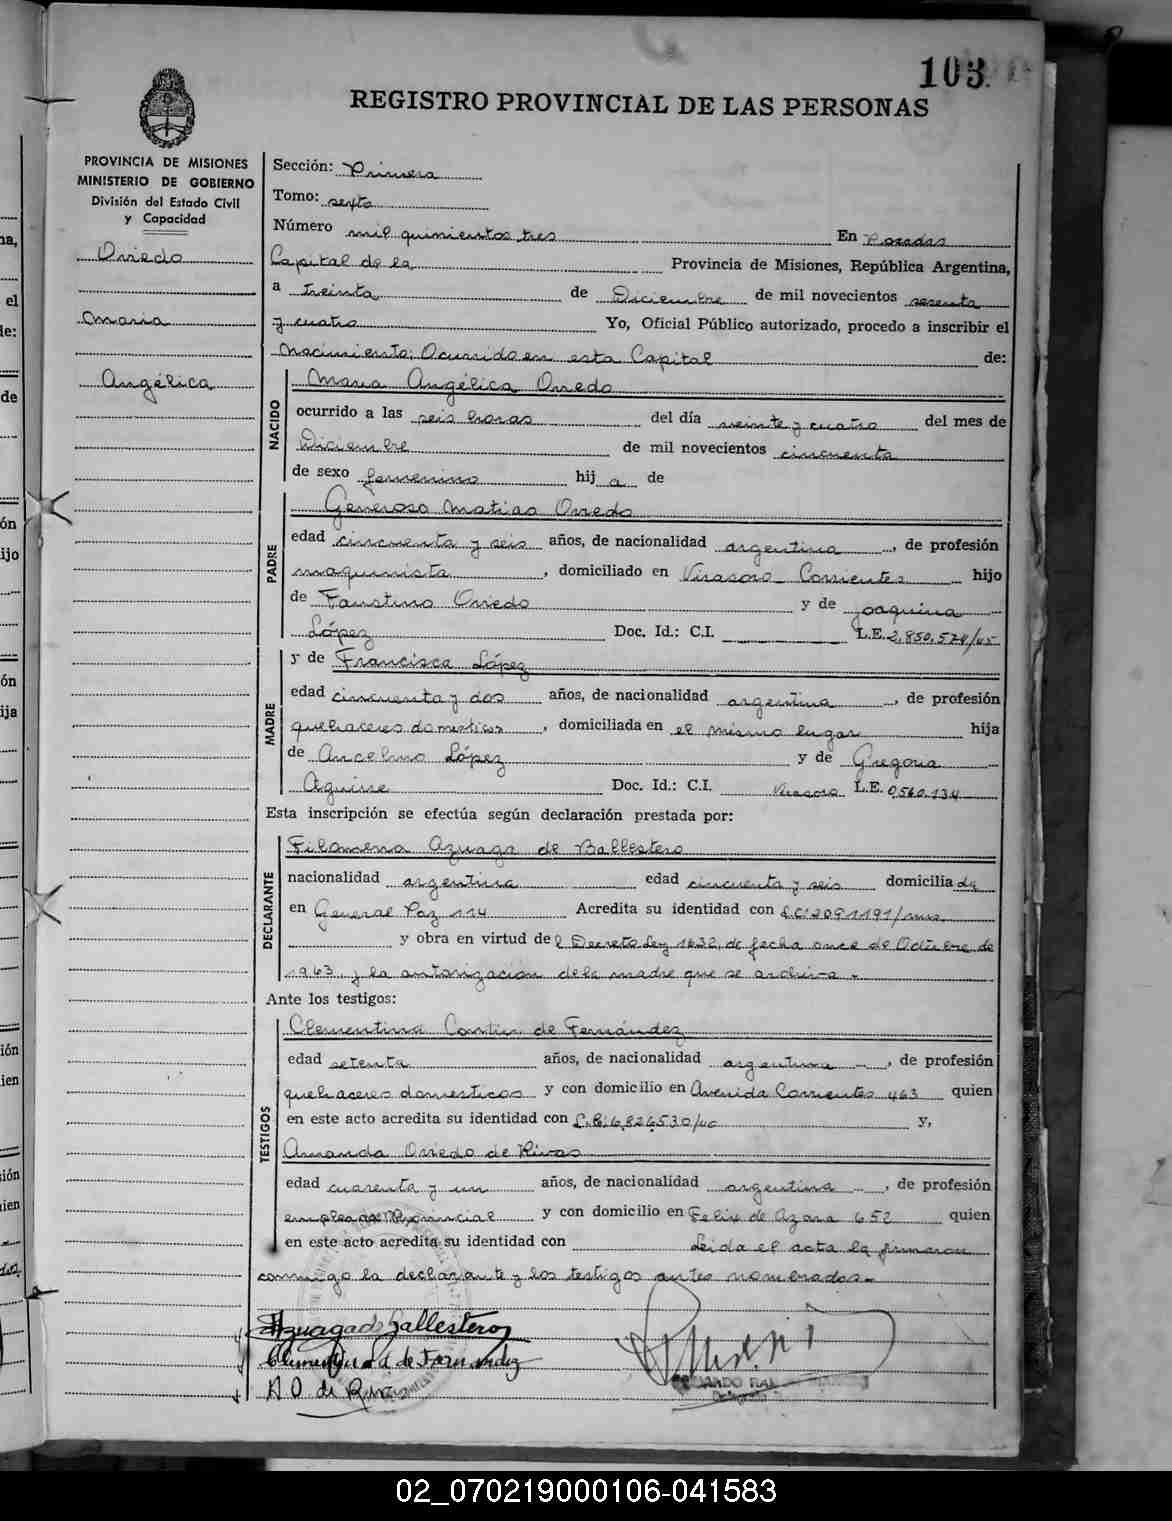 103
REGISTRO PROVINCIAL DE LAS PERSONAS
PROVINCIA DE MISIONES
MINISTERIO DE GOBIERNO
División del Estado Civil
y Capacidad
Oviedo
Maria
Angélica
Sección: Primera
Tomo: sexto
Número mil quinientos tres En Posadas
Capital de la Provincia de Misiones, República Argentina,
a Treinta de Diciembre de mil novecientos sesenta
y cuatro Yo, Oficial Público autorizado, procedo a inscribir el
Nacimiento; Ocurrido en esta Capital de:
NACIDO
Maria Angélica Oviedo
ocurrido a las seis horas del día veinte y cuatro del mes de
Diciembre de mil novecientos cincuenta
de sexo femenino hij a de
PADRE
Generoso Matias Oviedo
edad cincuenta y seis años, de nacionalidad argentina, de profesión
maquinista, domiciliado en Virasoro Corrientes hijo
de Faustino Oviedo y de Joaquina
López Doc. Id.: C.I. L.E. 2.850.574/45
MADRE
y de Francisca López
edad cincuenta y dos años, de nacionalidad argentina, de profesión
quehaceres domesticos, domiciliada en el mismo lugar hija
de Ancelmo López y de Gregoria
Aguirre Doc. Id.: C.I. Virasoro L.E. 0.560.134
Esta inscripción se efectúa según declaración prestada por:
DECLARANTE
Filomena Azuaga de Ballestero
nacionalidad argentina edad cincuenta y seis domicilia da
en General Paz 114 Acredita su identidad con L.C. 2091191/mis.
y obra en virtud de l Decreto Ley 1632, de fecha once de Octubre de
1963, y la autorización de la madre que se archiva.-
Ante los testigos:
TESTIGOS
Clementina de Fernández
edad setenta años, de nacionalidad argentina, de profesión
quehaceres domesticos y con domicilio en Avenida Corrientes 463 quien
en este acto acredita su identidad con 6.826.530/ y,
Amanda Oviedo de Rivas
edad cuarenta y un años, de nacionalidad argentina, de profesión
empleada Provincial y con domicilio en Felix de Azara 652 quien
en este acto acredita su identidad con Leida el acta la firmaron
conmigo la declarante y los testigos antes nombrados.-
Azuaga de Ballestero
Clementina de Fernandez
A. O. de Rivas
02_070219000106-041583